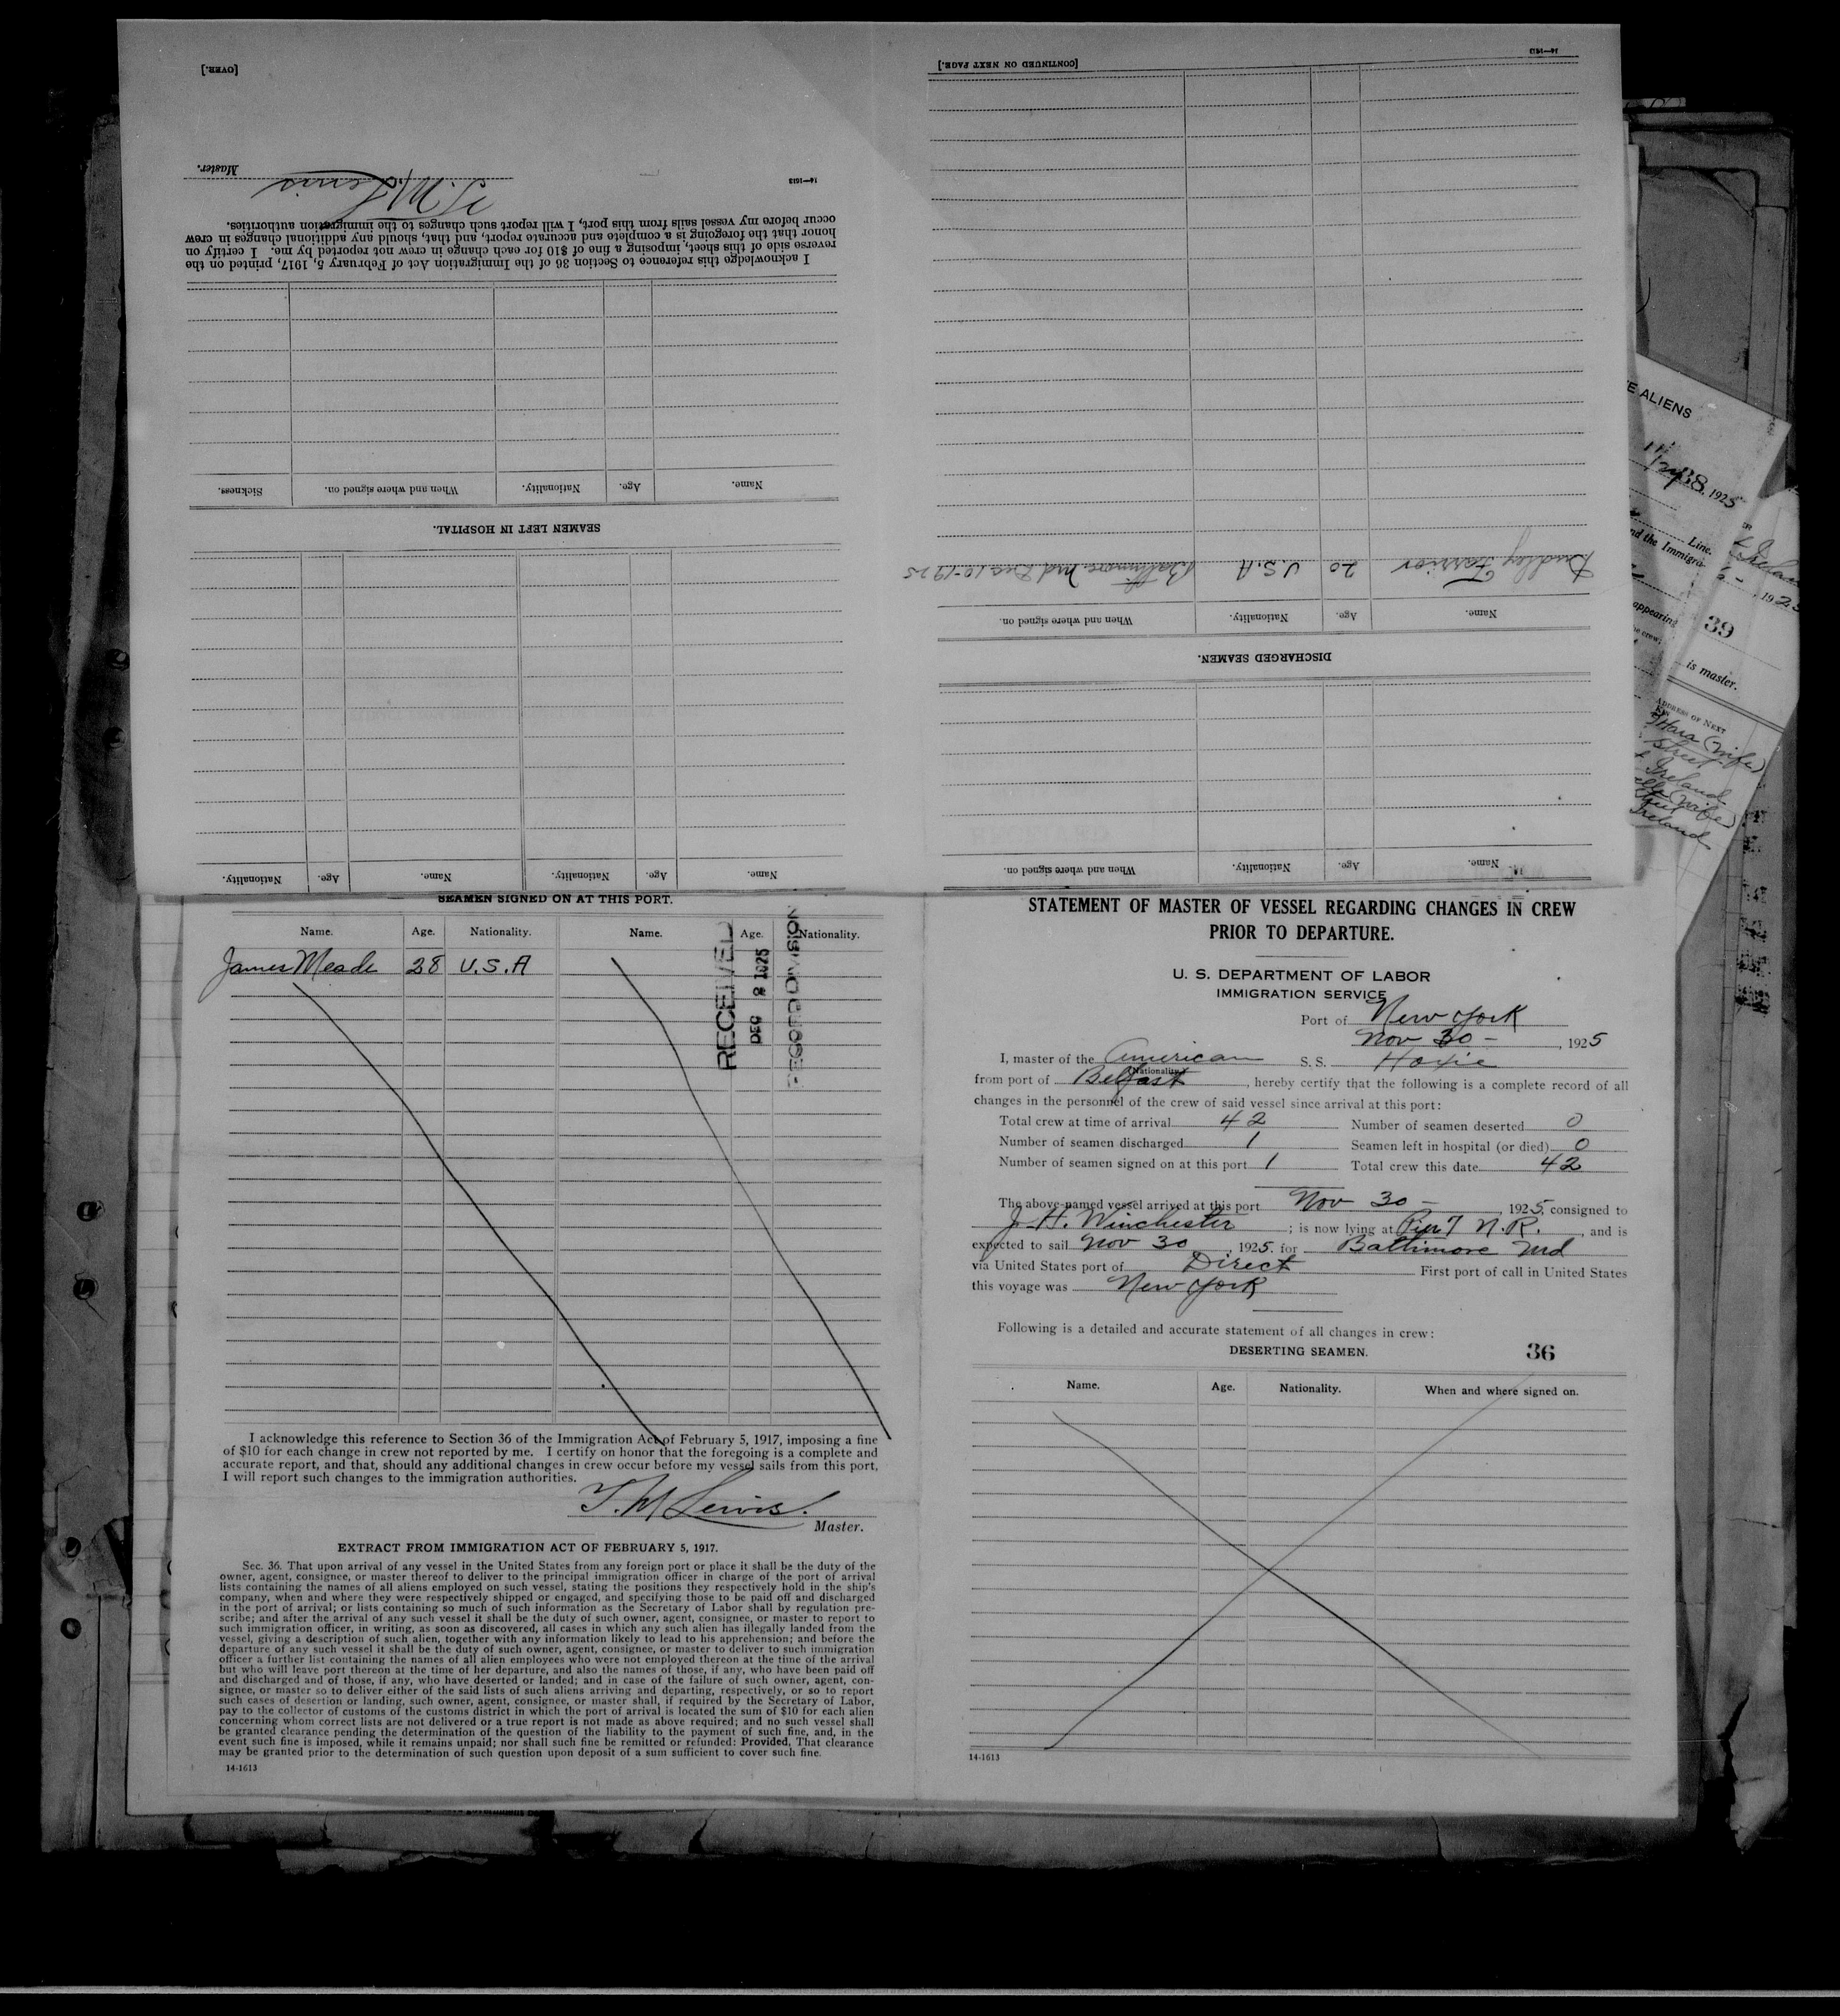 [OVER.]
Master.
T. M. Lewis
14—1613
I acknowledge this reference to Section 36 of the Immigration Act of February 5, 1917, printed on the
reverse side of this sheet, imposing a fine of $10 for each change in crew not reported by me. I certify on
honor that the foregoing is a complete and accurate report, and that, should any additional changes in crew
occur before my vessel sails from this port, I will report such changes to the immigration authorities.
Name. Age. Nationality. When and where signed on. Sickness.
SEAMEN LEFT IN HOSPITAL.
Name. Age. Nationality. Name. Age. Nationality.
14—1613
[CONTINUED ON NEXT PAGE.]
Dudley Farrior 20 U.S.A Baltimore Md 10-1925
Name. Age. Nationality. When and where signed on.
DISCHARGED SEAMEN.
Name. Age. Nationality. When and where signed on.
SEAMEN SIGNED ON AT THIS PORT.
Name. Age. Nationality. Name. Age. Nationality.
James Meade 28 U.S.A
RECEIVED
DEC 8 1925
RECORD DIVISION
I acknowledge this reference to Section 36 of the Immigration Act of February 5, 1917, imposing a fine
of $10 for each change in crew not reported by me. I certify on honor that the foregoing is a complete and
accurate report, and that, should any additional changes in crew occur before my vessel sails from this port,
I will report such changes to the immigration authorities.
T. M Lewis.
Master.
EXTRACT FROM IMMIGRATION ACT OF FEBRUARY 5, 1917.
Sec. 36. That upon arrival of any vessel in the United States from any foreign port or place it shall be the duty of the
owner, agent, consignee, or master thereof to deliver to the principal immigration officer in charge of the port of arrival
lists containing the names of all aliens employed on such vessel, stating the positions they respectively hold in the ship's
company, when and where they were respectively shipped or engaged, and specifying those to be paid off and discharged
in the port of arrival; or lists containing so much of such information as the Secretary of Labor shall by regulation pre-
scribe; and after the arrival of any such vessel it shall be the duty of such owner, agent, consignee, or master to report to
such immigration officer, in writing, as soon as discovered, all cases in which any such alien has illegally landed from the
vessel, giving a description of such alien, together with any information likely to lead to his apprehension; and before the
departure of any such vessel it shall be the duty of such owner, agent, consignee, or master to deliver to such immigration
officer a further list containing the names of all alien employees who were not employed thereon at the time of the arrival
but who will leave port thereon at the time of her departure, and also the names of those, if any, who have been paid off
and discharged and of those, if any, who have deserted or landed; and in case of the failure of such owner, agent, con-
signee, or master so to deliver either of the said lists of such aliens arriving and departing, respectively, or so to report
such cases of desertion or landing, such owner, agent, consignee, or master shall, if required by the Secretary of Labor,
pay to the collector of customs of the customs district in which the port of arrival is located the sum of $10 for each alien
concerning whom correct lists are not delivered or a true report is not made as above required; and no such vessel shall
be granted clearance pending the determination of the question of the liability to the payment of such fine, and, in the
event such fine is imposed, while it remains unpaid; nor shall such fine be remitted or refunded: Provided, That clearance
may be granted prior to the determination of such question upon deposit of a sum sufficient to cover such fine.
14-1613
STATEMENT OF MASTER OF VESSEL REGARDING CHANGES IN CREW
PRIOR TO DEPARTURE.
U. S. DEPARTMENT OF LABOR
IMMIGRATION SERVICE
Port of New York
Nov 30 - , 1925
I, master of the American S. S. Hoxie
(Nationality)
from port of Belfast, hereby certify that the following is a complete record of all
changes in the personnel of the crew of said vessel since arrival at this port:
Total crew at time of arrival 42 Number of seamen deserted 0
Number of seamen discharged 1 Seamen left in hospital (or died) 0
Number of seamen signed on at this port 1 Total crew this date 42
The above-named vessel arrived at this port Nov 30 - , 1925, consigned to
J. H. Winchester ; is now lying at Pier 7 N.R. , and is
expected to sail Nov 30 , 1925, for Baltimore Md
via United States port of Direct First port of call in United States
this voyage was New York
Following is a detailed and accurate statement of all changes in crew:
DESERTING SEAMEN. 36
Name. Age. Nationality. When and where signed on.
14-1613
E ALIENS
, 1925
Line.
nd the Immigra
appearing
e crew;
, 192
39
is master.
ADDRESS OF NEXT
(wife)
Street
Ireland
(wife)
Ireland